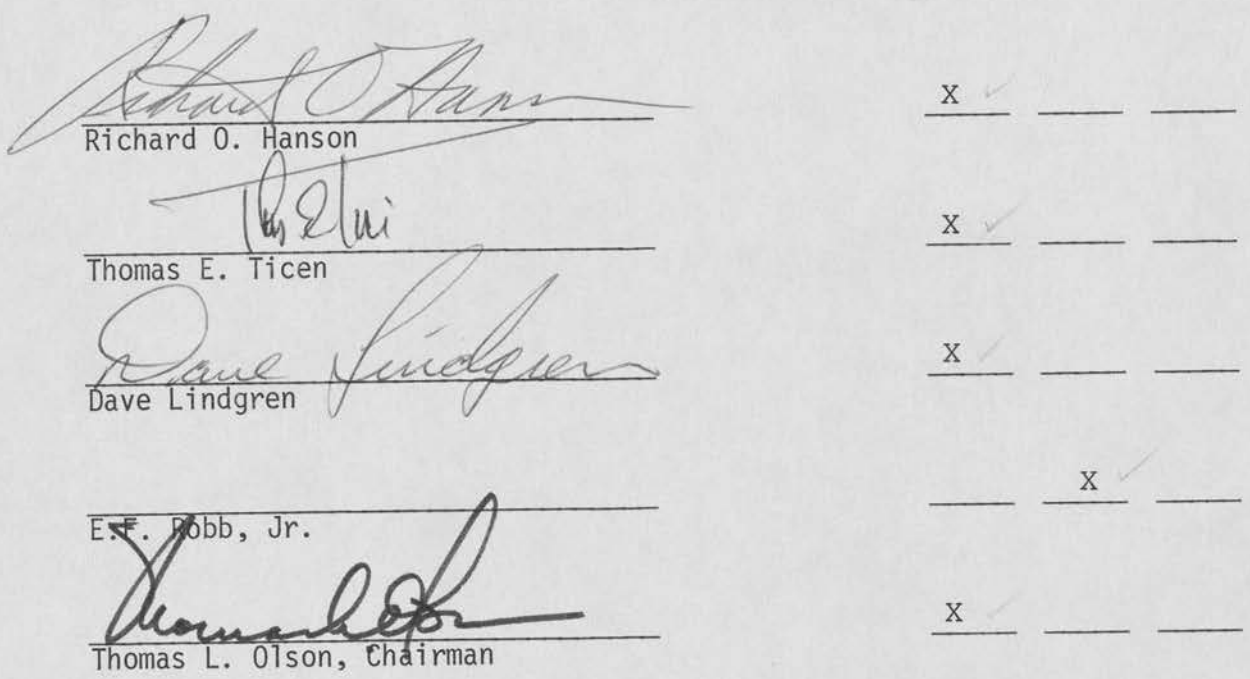 Richard O Hanson X
Richard O. Hanson
X
Thomas E. Ticen
Dave Lindgren X
Dave Lindgren
X
E.F. Robb, Jr.
X
Thomas L. Olson, Chairman